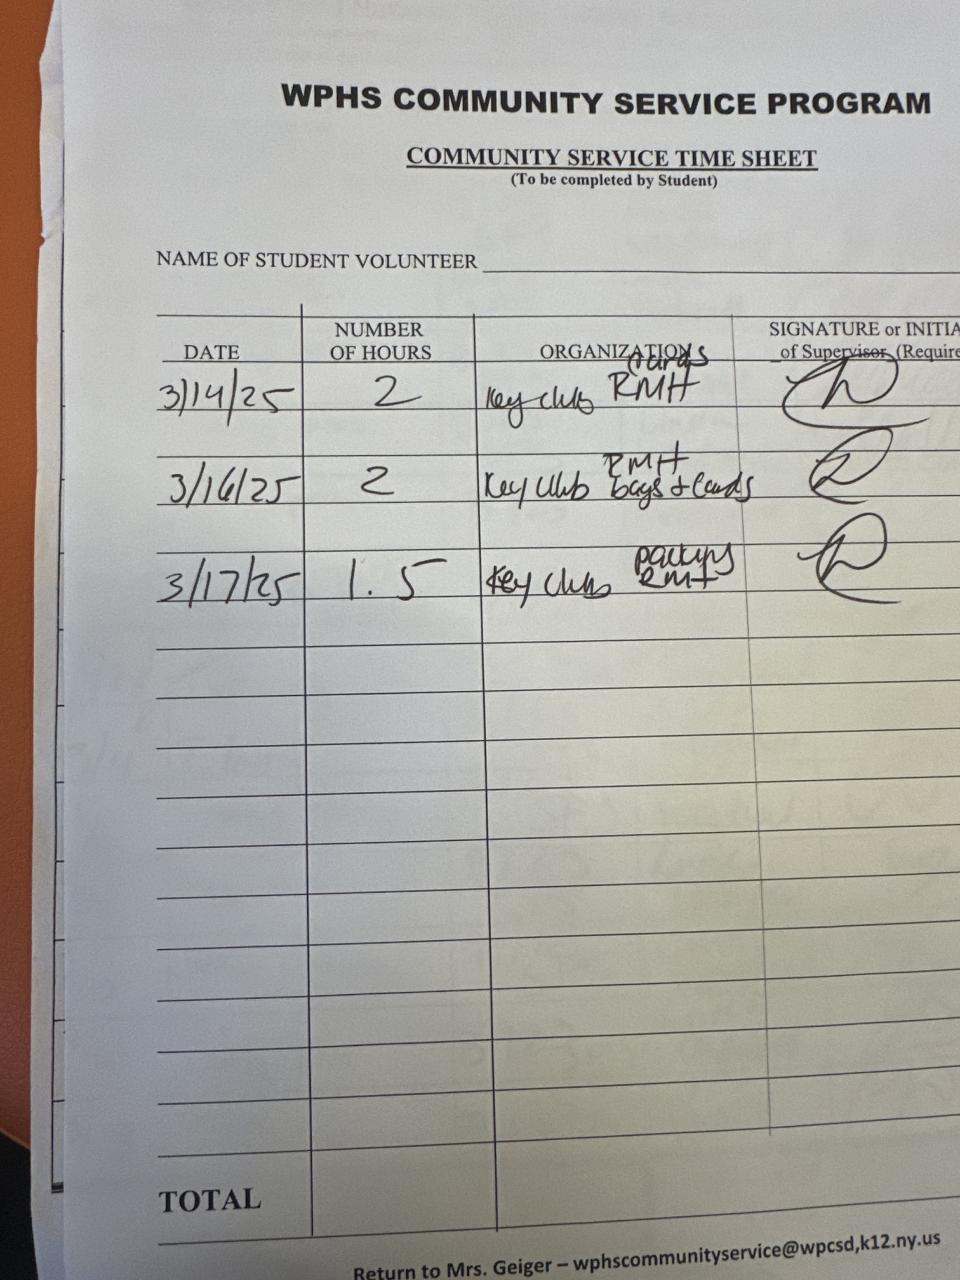 WPHS COMMUNITY SERVICE PROGRAM
COMMUNITY SERVICE TIME SHEET
(To be completed by Student)
NAME OF STUDENT VOLUNTEER
DATE NUMBER OF HOURS ORGANIZATION SIGNATURE or INITIA
of Supervisor (Require
3/14/25 2 Key club RMH cards
3/16/25 2 Key Club RMH bags + Cards
3/17/25 1.5 Key Club RMH
TOTAL
Return to Mrs. Geiger – wphscommunityservice@wpcsd,k12.ny.us